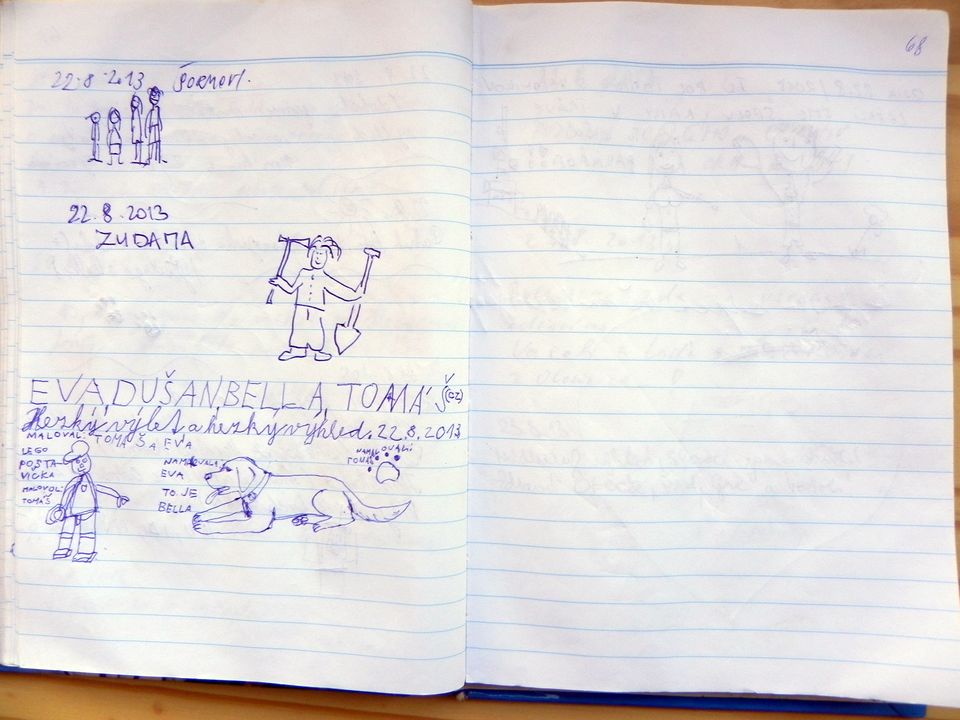 22.8.2013
22.8.2013
ZUDAMA
EVA, DUŠAN, BELLA, TOMÁŠ (CZ)
Hezký výlet a hezký výhled. 22.8.2013
MALOVAL: TOMÁŠ A EVA
LEGO
POSTA-
VIČKA
MALOVAL:
TOMÁŠ
NAMALOVALA:
EVA
TO JE
BELLA
NAMALOVAL:
TOMÁŠ
68